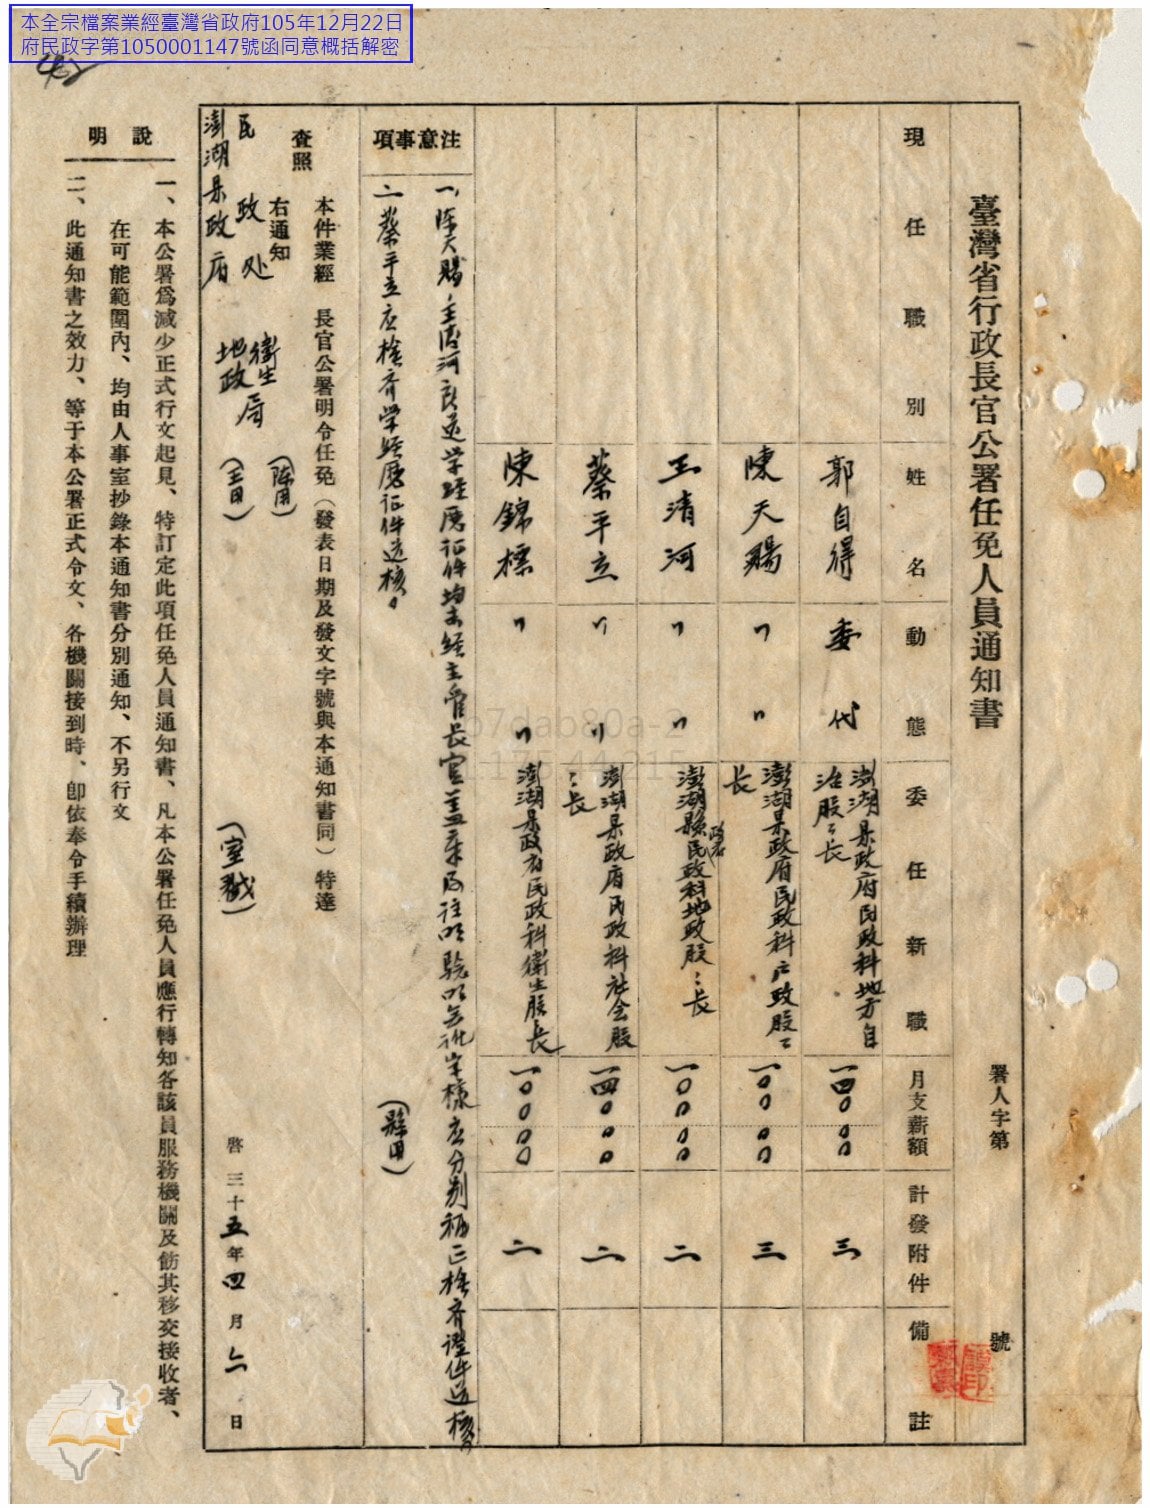 本全宗檔案業經臺灣省政府105年12月22日
府民政字第1050001147號函同意概括解密
臺灣省行政長官公署任免人員通知書
署人字第　號
現任職別
姓名
動態
委任新職
月支薪額
計發附件
備註
郭自得
委代
澎湖县政府民政科地方自
治股〻長
一四〇〇〇
三
陳天賜
〃〃
澎湖县政府民政科户政股〻
長
一〇〇〇〇
三
王清河
〃〃
澎湖縣政府民政科地政股〻長
一〇〇〇〇
二
蔡平立
〃〃
澎湖县政府民政科社会股
〻長
一四〇〇〇
二
陳錦標
〃〃
澎湖县政府民政科衛生股長
一〇〇〇〇
二
注意事項
一、陳天賜、王清河、良送学経歷証件均未経主管長官盖章及註明驗明無訛字樣应分别補正檢齐證件送核
二、蔡平立应檢齐学経歷証件送核。
(縣用)
本件業經　長官公署明令任免（發表日期及發文字號與本通知書同）特達
查照
右通知
民政处
衛生
地政局
(陈用)
(王用)
澎湖县政府
(室戳)
啓　三十五年四月　日
說明
一、本公署爲減少正式行文起見、特訂定此項任免人員通知書、凡本公署任免人員應行轉知各該員服務機關及飭其移交接收者、
在可能範圍內、均由人事室抄錄本通知書分別通知、不另行文
二、此通知書之效力、等于本公署正式令文、各機關接到時、卽依奉令手續辦理